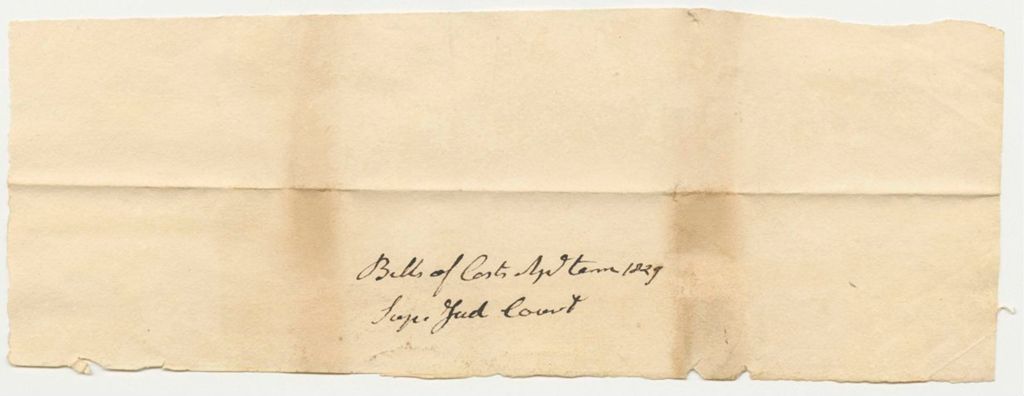 Bills of Costs Apl term 1829
Sup. Jud Court